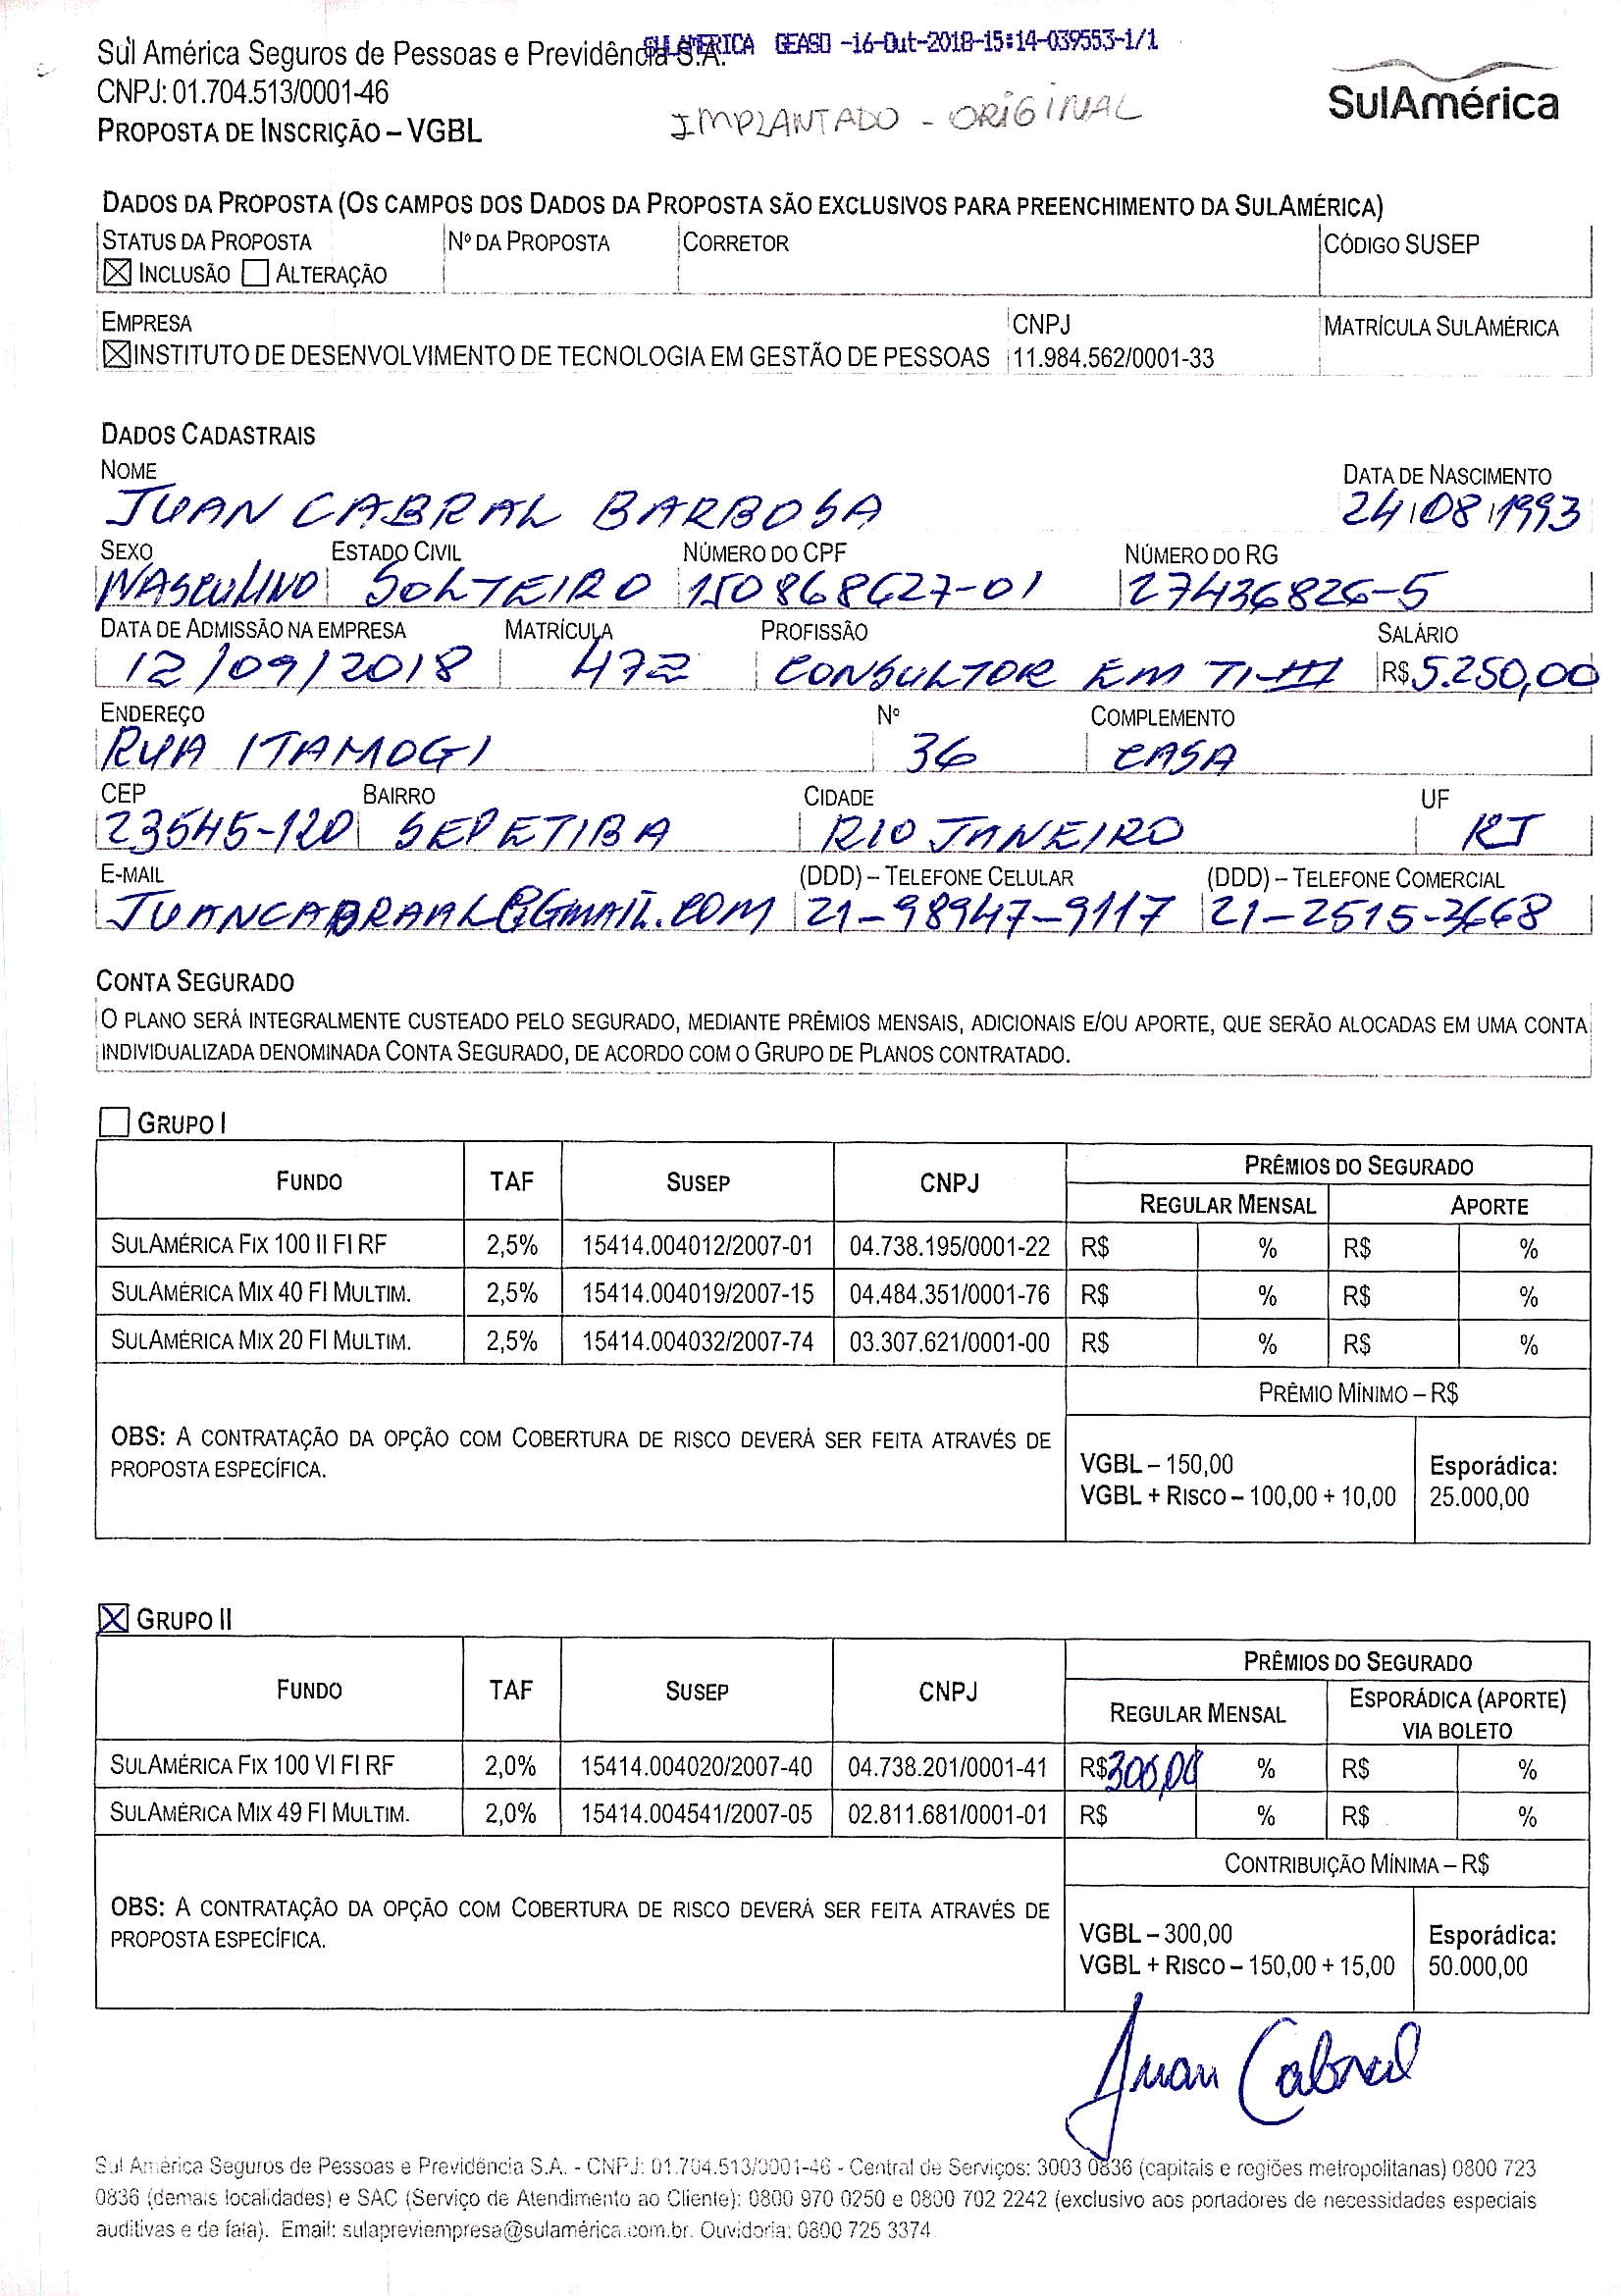 Sul América Seguros de Pessoas e Previdência S.A.
SULAMERICA GEASO -16-Out-2018-15:14-039553-1/1
CNPJ: 01.704.513/0001-46
PROPOSTA DE INSCRIÇÃO – VGBL
IMPLANTADO - ORIGINAL
SulAmérica
DADOS DA PROPOSTA (OS CAMPOS DOS DADOS DA PROPOSTA SÃO EXCLUSIVOS PARA PREENCHIMENTO DA SULAMÉRICA)
STATUS DA PROPOSTA Nº DA PROPOSTA CORRETOR CÓDIGO SUSEP
☒ INCLUSÃO ☐ ALTERAÇÃO
EMPRESA CNPJ MATRÍCULA SULAMÉRICA
☒ INSTITUTO DE DESENVOLVIMENTO DE TECNOLOGIA EM GESTÃO DE PESSOAS 11.984.562/0001-33
DADOS CADASTRAIS
NOME DATA DE NASCIMENTO
JUAN CABRAL BARBOSA 24/08/1993
SEXO ESTADO CIVIL NÚMERO DO CPF NÚMERO DO RG
MASCULINO SOLTEIRO 150868627-01 27436826-5
DATA DE ADMISSÃO NA EMPRESA MATRÍCULA PROFISSÃO SALÁRIO
12/09/2018 472 CONSULTOR EM TI-III R$ 5.250,00
ENDEREÇO Nº COMPLEMENTO
RUA ITAMOGI 36 CASA
CEP BAIRRO CIDADE UF
23545-120 SEPETIBA RIO JANEIRO RJ
E-MAIL (DDD) – TELEFONE CELULAR (DDD) – TELEFONE COMERCIAL
JUANCABRAAL@GMAIL.COM 21-98947-9117 21-2515-3668
CONTA SEGURADO
O PLANO SERÁ INTEGRALMENTE CUSTEADO PELO SEGURADO, MEDIANTE PRÊMIOS MENSAIS, ADICIONAIS E/OU APORTE, QUE SERÃO ALOCADAS EM UMA CONTA
INDIVIDUALIZADA DENOMINADA CONTA SEGURADO, DE ACORDO COM O GRUPO DE PLANOS CONTRATADO.
☐ GRUPO I
FUNDO TAF SUSEP CNPJ PRÊMIOS DO SEGURADO
REGULAR MENSAL APORTE
SULAMÉRICA FIX 100 II FI RF 2,5% 15414.004012/2007-01 04.738.195/0001-22 R$ % R$ %
SULAMÉRICA MIX 40 FI MULTIM. 2,5% 15414.004019/2007-15 04.484.351/0001-76 R$ % R$ %
SULAMÉRICA MIX 20 FI MULTIM. 2,5% 15414.004032/2007-74 03.307.621/0001-00 R$ % R$ %
PRÊMIO MÍNIMO – R$
OBS: A CONTRATAÇÃO DA OPÇÃO COM COBERTURA DE RISCO DEVERÁ SER FEITA ATRAVÉS DE
PROPOSTA ESPECÍFICA.
VGBL – 150,00 Esporádica:
VGBL + RISCO – 100,00 + 10,00 25.000,00
☒ GRUPO II
FUNDO TAF SUSEP CNPJ PRÊMIOS DO SEGURADO
REGULAR MENSAL ESPORÁDICA (APORTE)
VIA BOLETO
SULAMÉRICA FIX 100 VI FI RF 2,0% 15414.004020/2007-40 04.738.201/0001-41 R$ 300,00 % R$ %
SULAMÉRICA MIX 49 FI MULTIM. 2,0% 15414.004541/2007-05 02.811.681/0001-01 R$ % R$ %
CONTRIBUIÇÃO MÍNIMA – R$
OBS: A CONTRATAÇÃO DA OPÇÃO COM COBERTURA DE RISCO DEVERÁ SER FEITA ATRAVÉS DE
PROPOSTA ESPECÍFICA.
VGBL – 300,00 Esporádica:
VGBL + RISCO – 150,00 + 15,00 50.000,00
Juan Cabral
Sul América Seguros de Pessoas e Previdência S.A. - CNPJ: 01.704.513/0001-46 - Central de Serviços: 3003 0836 (capitais e regiões metropolitanas) 0800 723
0836 (demais localidades) e SAC (Serviço de Atendimento ao Cliente): 0800 970 0250 e 0800 702 2242 (exclusivo aos portadores de necessidades especiais
auditivas e de fala). Email: sulapreviempresa@sulamérica.com.br. Ouvidoria: 0800 725 3374